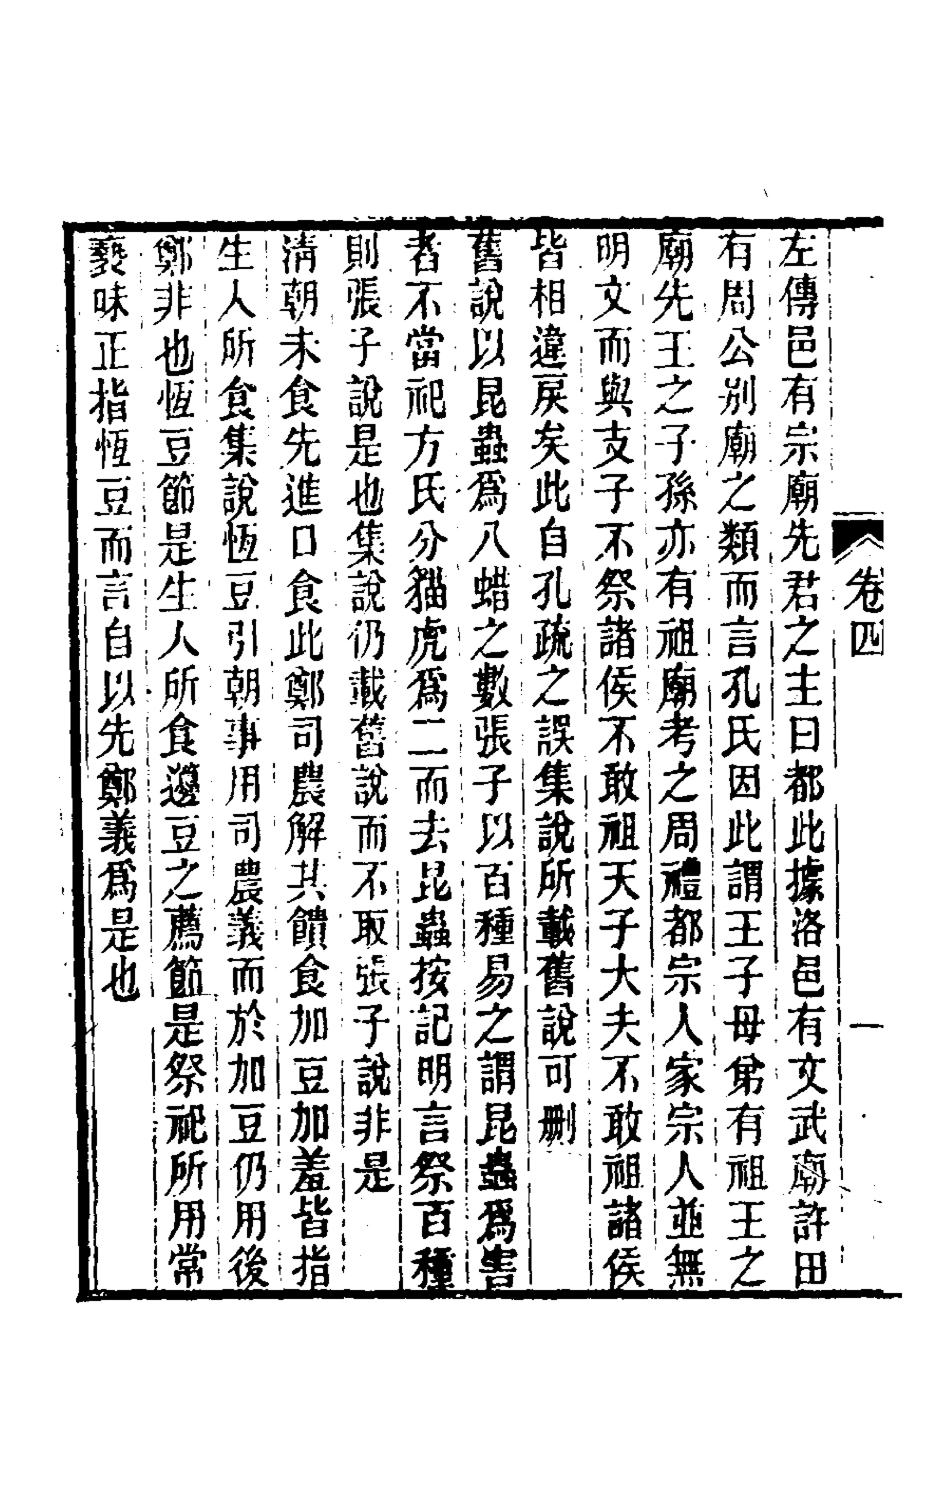 卷四
一
左傳邑有宗廟先君之主曰都此據洛邑有文武廟許田
有周公別廟之類而言孔氏因此謂王子母弟有祖王之
廟先王之子孫亦有祖廟考之周禮都宗人家宗人並無
明文而與支子不祭諸侯不敢祖天子大夫不敢祖諸侯
皆相違戾矣此自孔疏之誤集說所載舊說可刪
舊說以昆蟲爲八蜡之數張子以百種易之謂昆蟲爲害
者不當祀方氏分貓虎爲二而去昆蟲按記明言祭百種
則張子說是也集說仍載舊說而不取張子說非是
清朝未食先進口食此鄭司農解其饋食加豆加羞皆指
生人所食集說恆豆引朝事用司農義而於加豆仍用後
鄭非也恆豆節是生人所食籩豆之薦節是祭祀所用常
褻味正指恆豆而言自以先鄭義爲是也